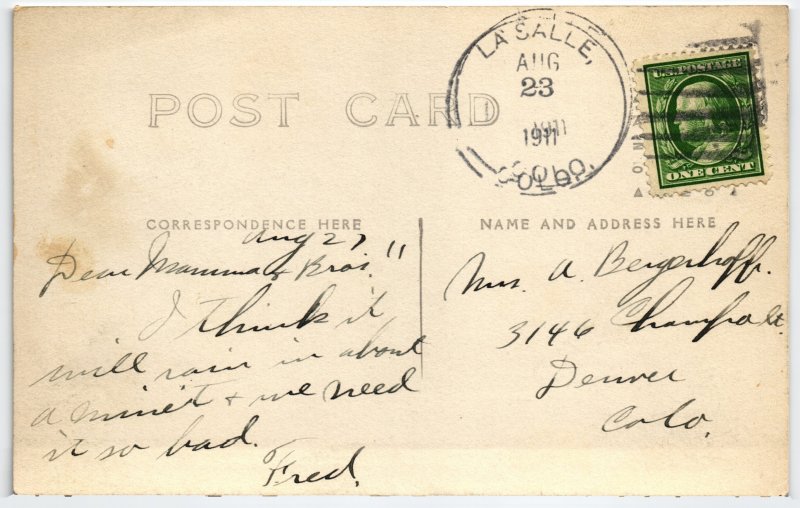 POST CARD
LA SALLE,
AUG
23
1911
COLO.
U.S. POSTAGE
ONE CENT
CORRESPONDENCE HERE
NAME AND ADDRESS HERE
Aug 23 11
Dear Mamma & Bros.
I think it
will rain in about
a minet + we need
it so bad.
Fred.
Mrs. A. Bergerhoff.
3146 Champa st
Denver
Colo.